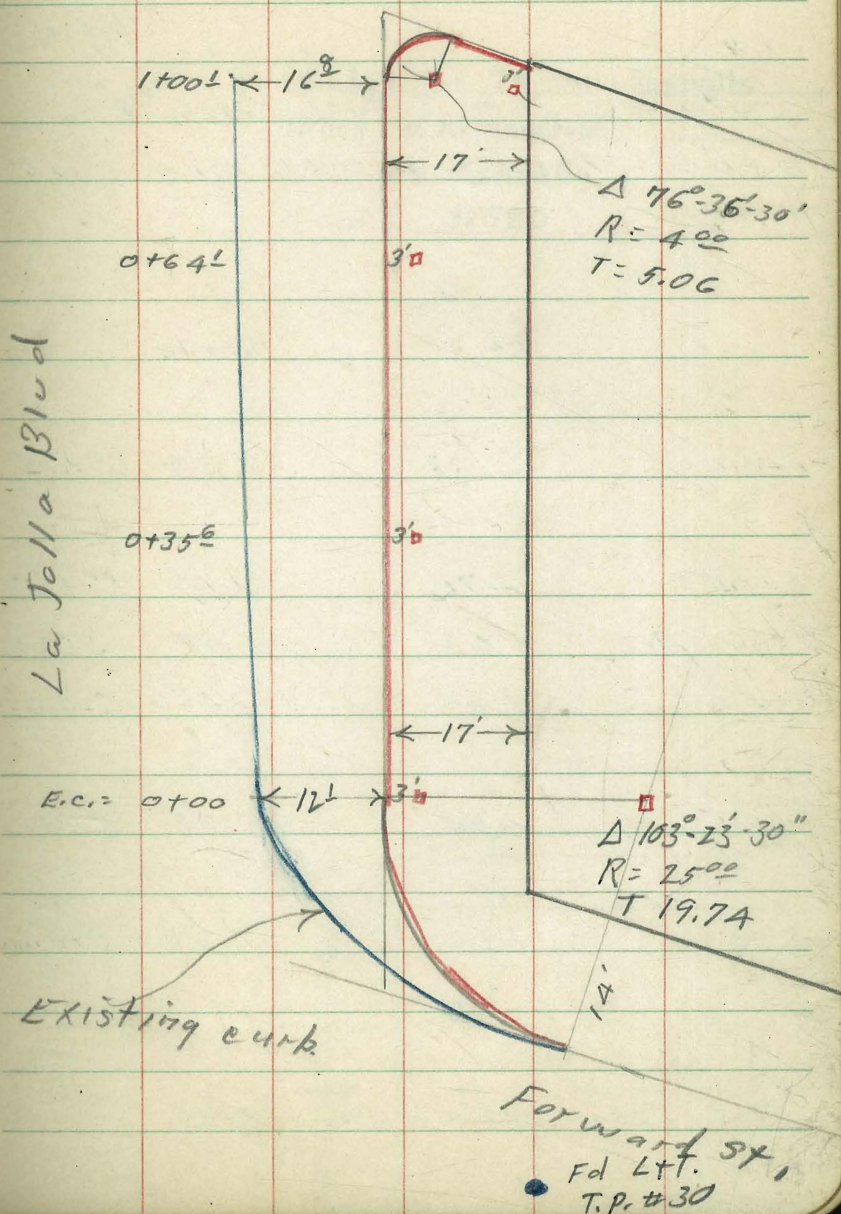 1+00¹
16⁸
0'
17'
Δ 76°-36'-30'
R = 4⁰⁰
T = 5.06
0+64¹
3'
La Jolla Blvd
0+35⁶
3'
17'
E.C. = 0+00
12¹
3'
Δ 103°-23'-30"
R = 25⁰⁰
T 19.74
14'
Existing curb.
Forward St,
Fd L+T.
T.P. #30